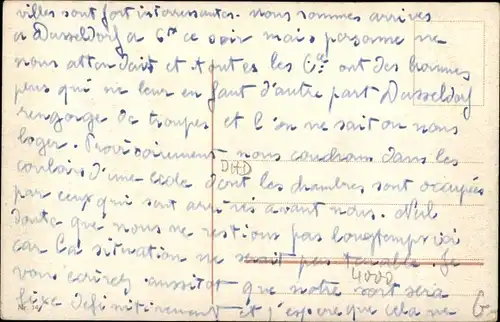 villes sont fort interressantes. nous sommes arrivés
a Dusseldorf a 6h ce soir mais personne ne
nous attendait et toutes les Cies ont des hommes
plus qu'il ne leur en faut d'autre part Dusseldorf
regorge de troupes et l'on ne sait ou nous
loger. Provisoirement nous couchons dans les
couloirs d'une ecole dont les chambres sont occupées
par ceux qui sont arrivés avant nous. Nul
doute que nous ne restions pas longtemps ici
car la situation ne serait pas tenable. Je
vous écrirez aussitot que notre sort sera
fixé definitivement et j'espere que cela ne
DHD
4000